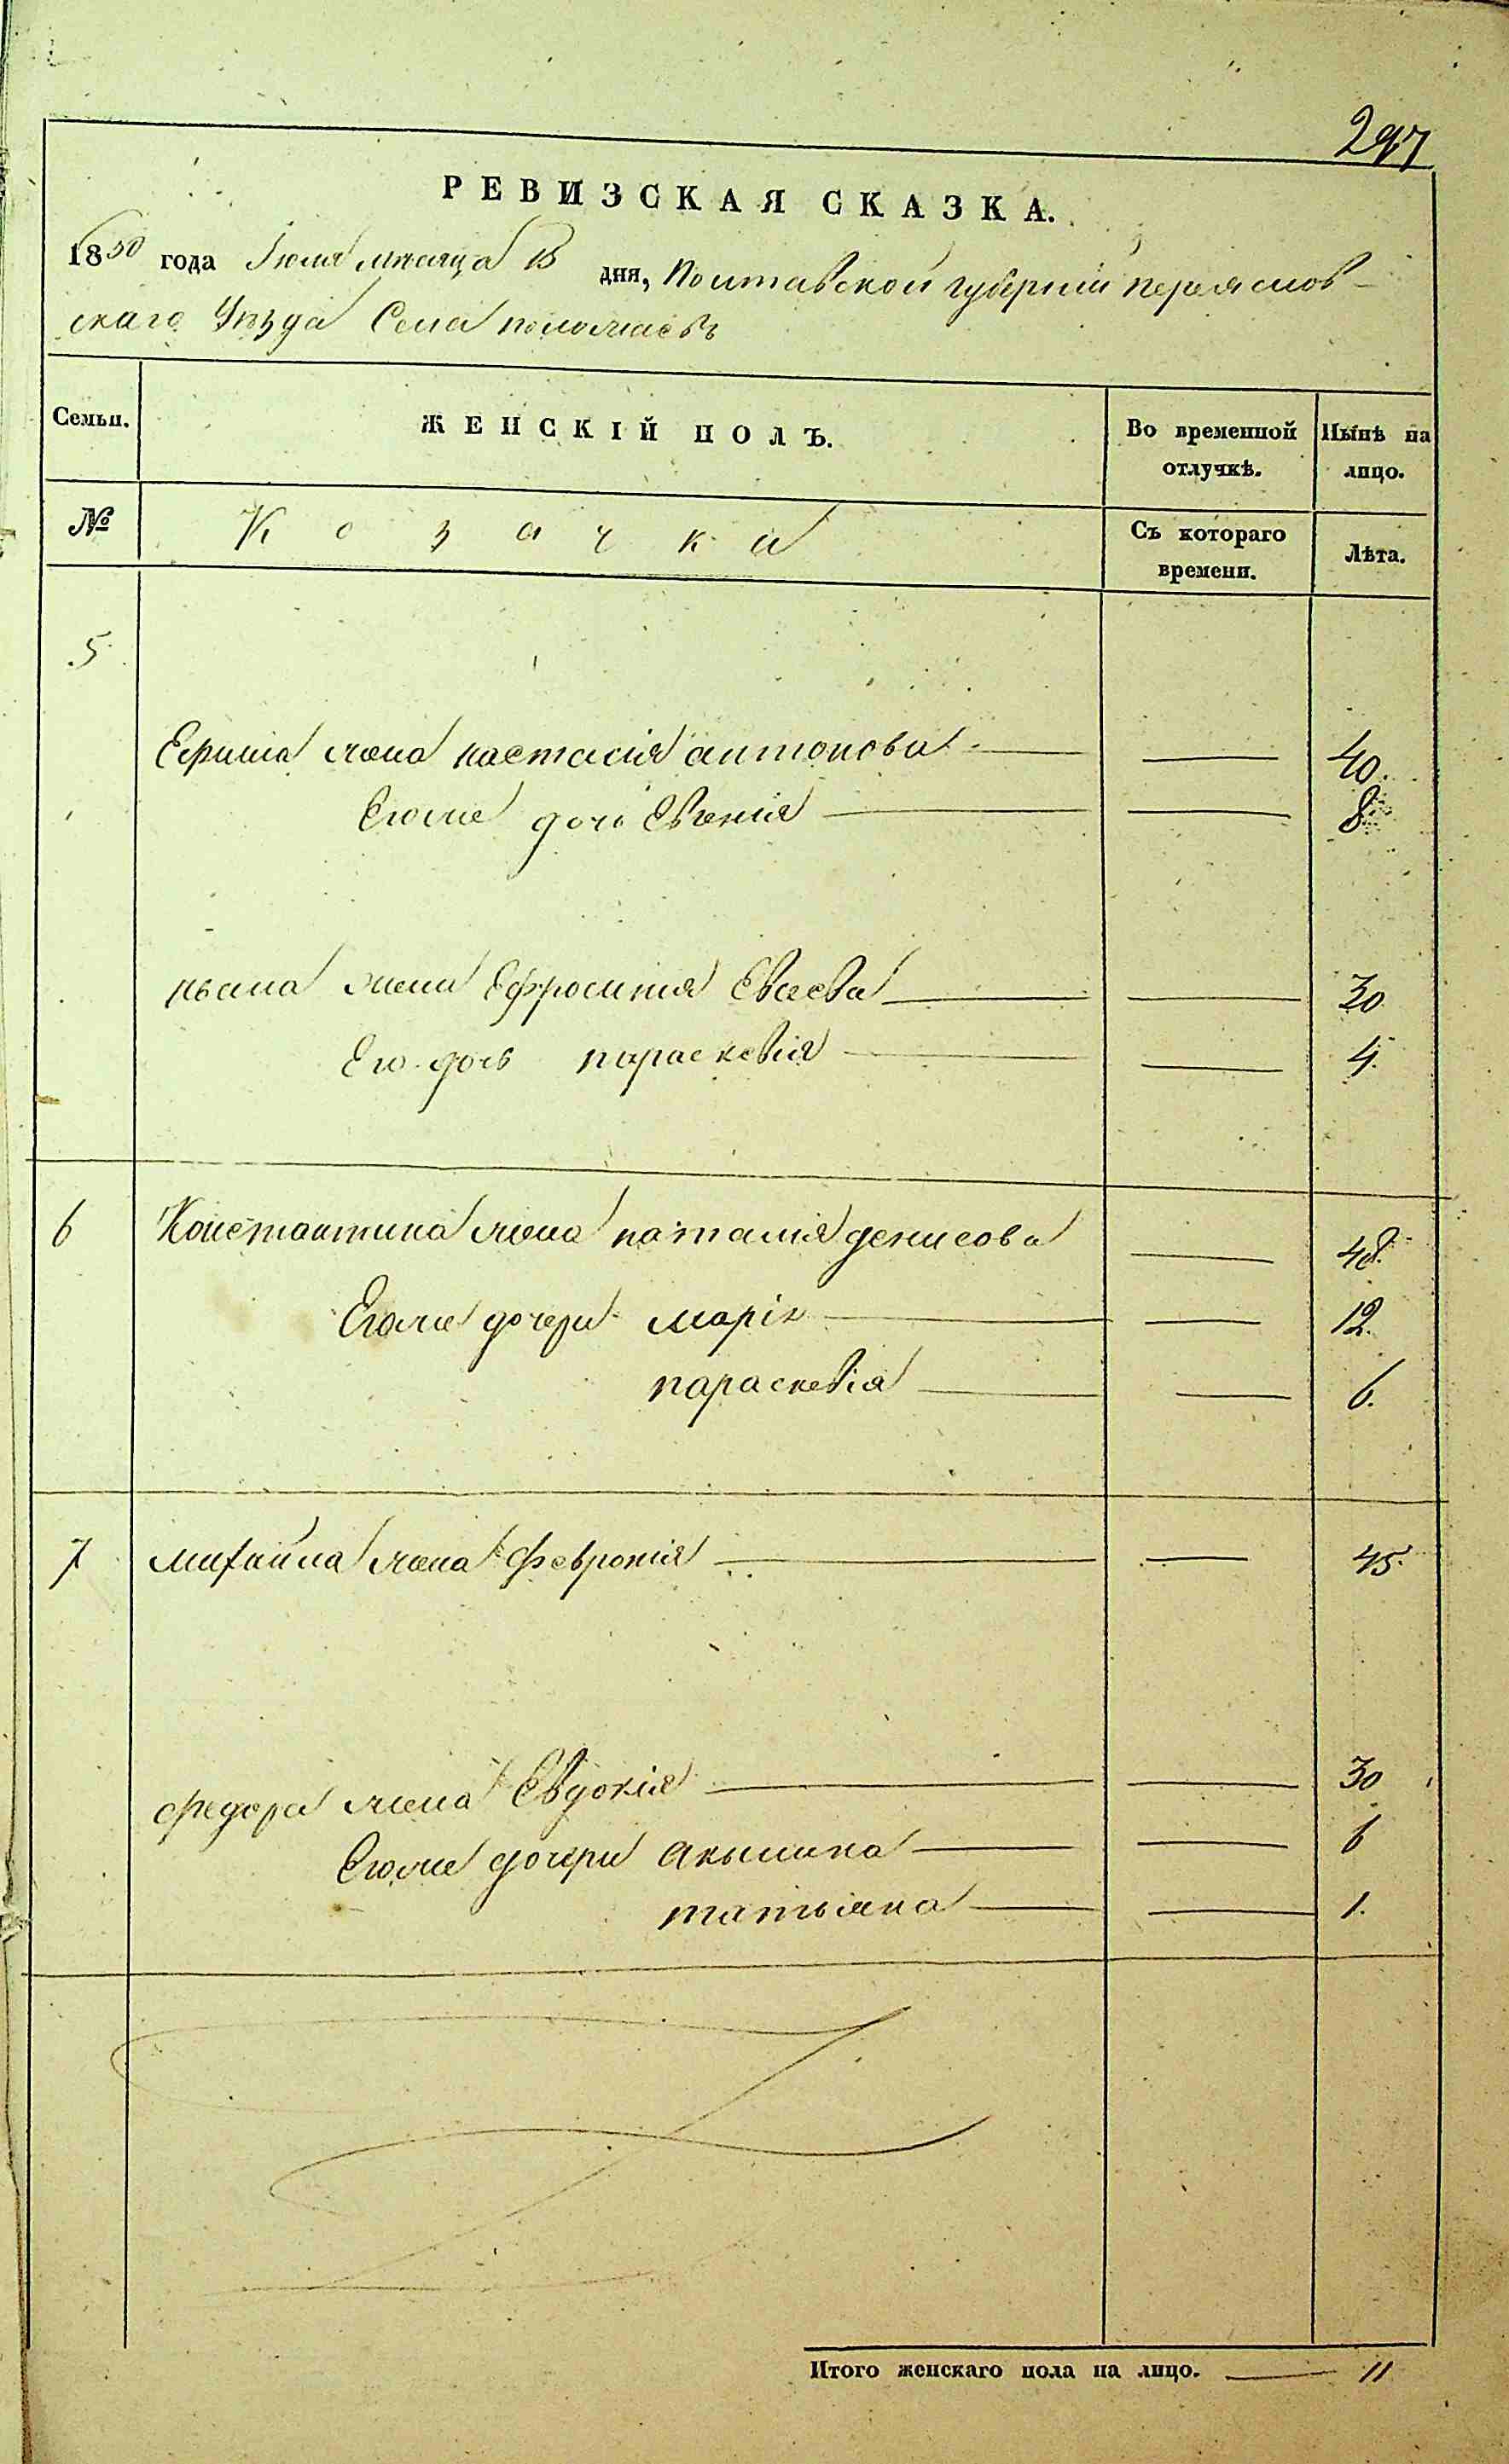 297
РЕВИЗСКАЯ СКАЗКА.
1850 года Іюля мѣсяца дня, Полтавской губерніи переяслов-
скаго Уѣзда Села
Семьи. ЖЕНСКІЙ ПОЛЪ. Во временной отлучкѣ. Нынѣ на лицо.
№ Козачки Съ котораго времени. Лѣта.
5
Ефима жена настасія антонова 40.
Егоже дочь Евгенія 8.
жена Ефросинія 30
Его дочь параскевія 4.
6 Константина жена наталія денисова 48.
Егоже дочери марія 12.
параскевія 6.
7 михайла жена Февронія 45.
федора жена Евдокія 30
Егоже дочери Акылина 6
татьяна 1.
Итого женскаго пола на лицо. 11